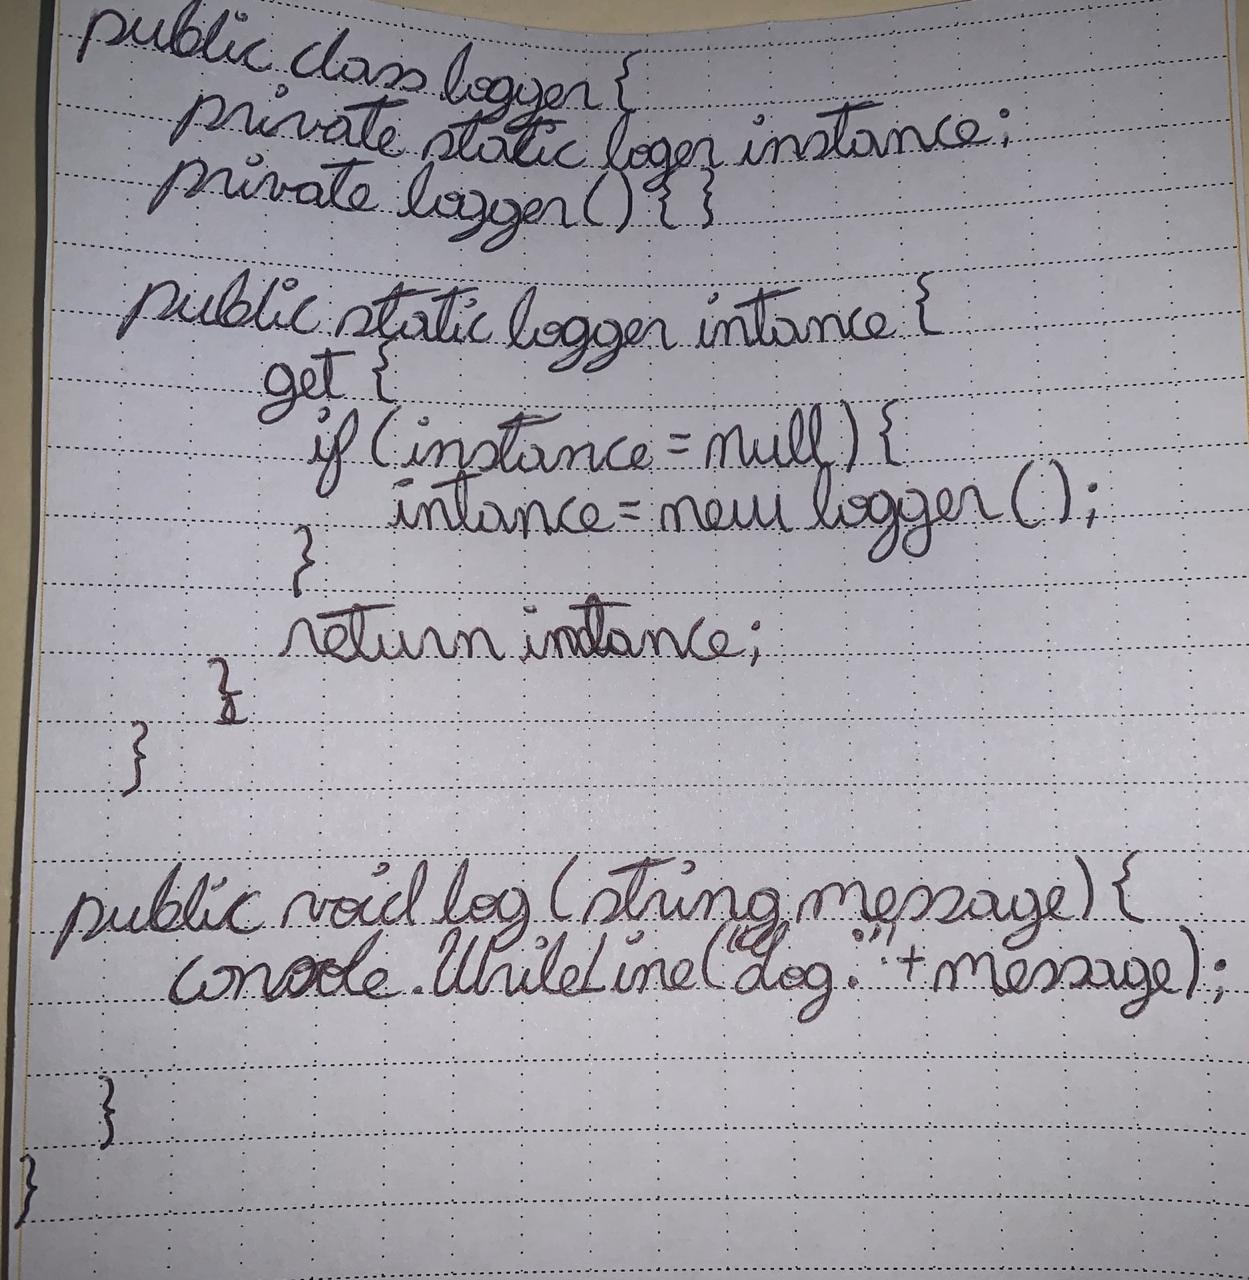 public class logger {
private static loger instance;
private logger() { }
public static logger intance {
get {
if (instance = null) {
intance = new logger ();
}
return instance;
}
}
public void log (string message) {
console.WhileLine("log:" + message);
}
}